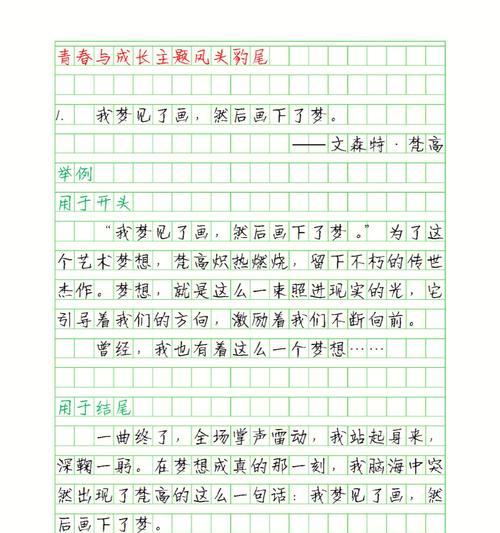 青春与成长主题凤头豹尾
1. 我梦见了画，然后画下了梦。
——文森特·梵高
举例
用于开头
“我梦见了画，然后画下了梦。”为了这
个艺术梦想，梵高炽热燃烧，留下不朽的传世
杰作。梦想，就是这么一束照进现实的光，它
引导着我们的方向，激励着我们不断向前。
曾经，我也有着这么一个梦想……
用于结尾
一曲终了，全场掌声雷动，我站起身来，
深鞠一躬。在梦想成真的那一刻，我脑海中突
然出现了梵高的这么一句话：我梦见了画，然
后画下了梦。